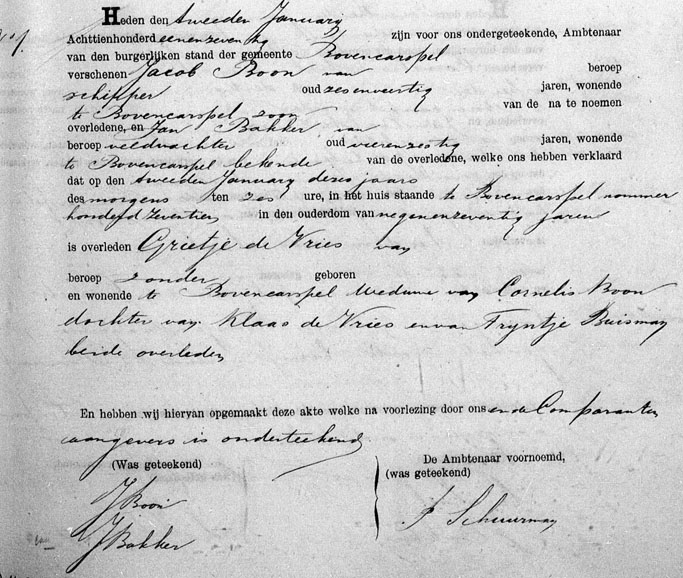 Heden den tweeden January
No 1. Achttienhonderd eenenzeventig zijn voor ons ondergeteekende, Ambtenaar
van den burgerlijken stand der gemeente Bovencarspel
verschenen Jacob Boon van beroep
schipper oud zesenveertig jaren, wonende
te Bovencarspel zoon van de na te noemen
overledene, en Jan Bakker van
beroep veldwachter oud vierenzestig jaren, wonende
te Bovencarspel bekende van de overledene, welke ons hebben verklaard
dat op den tweeden January dezes jaars
des morgens ten zes ure, in het huis staande te Bovencarspel nommer
honderd zeventien in den ouderdom van negenenzeventig jaren
is overleden Grietje de Vries van
beroep zonder geboren
en wonende te Bovencarspel Weduwe van Cornelis Boon
dochter van Klaas de Vries en van Tryntje Buisman
beide overleden
En hebben wij hiervan opgemaakt deze akte welke na voorlezing door ons en de Comparanten
aangevers is onderteekend
(Was geteekend) De Ambtenaar voornoemd,
(was geteekend)
J Boon
J Bakker
P Schuurman